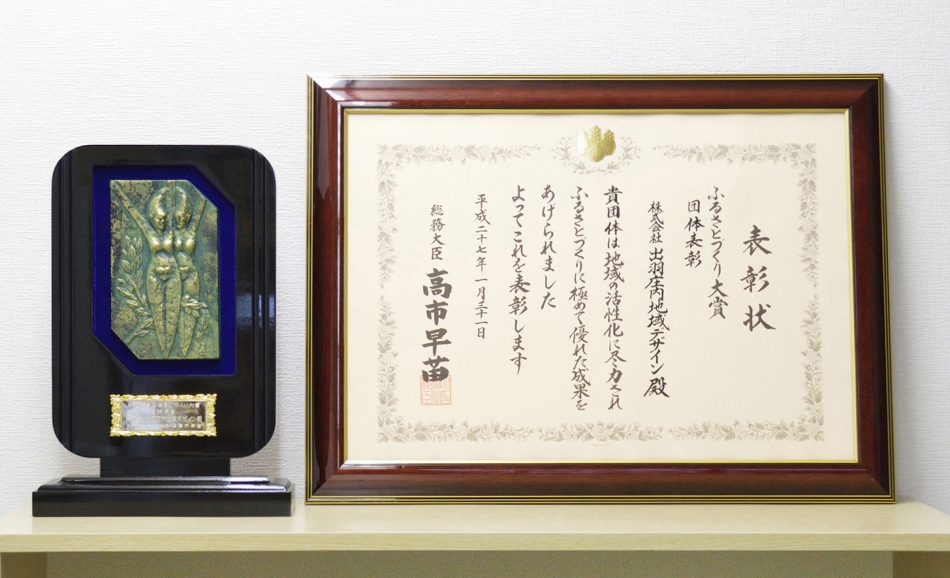 表彰状
ふるさとづくり大賞
団体表彰
株式会社 出羽庄内地域デザイン 殿
貴団体は地域の活性化に尽力され
ふるさとづくりに極めて優れた成果を
あげられました
よってこれを表彰します
平成二十七年一月三十一日
総務大臣 高市早苗